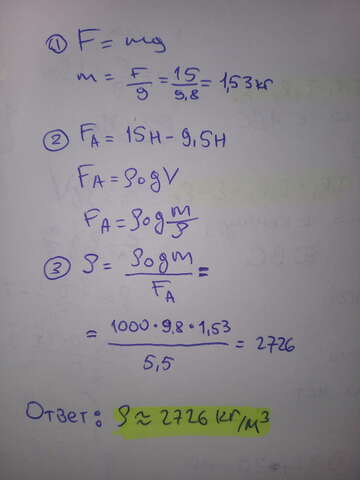 ① F = mg
m = F/g = 15/9,8 = 1,53кг
② F_A = 15Н - 9,5Н
F_A = ρ₀gV
F_A = ρ₀g m/ρ
③ ρ = ρ₀gm/F_A =
= 1000 · 9,8 · 1,53/5,5 = 2726
Ответ: ρ ≈ 2726 кг/м³